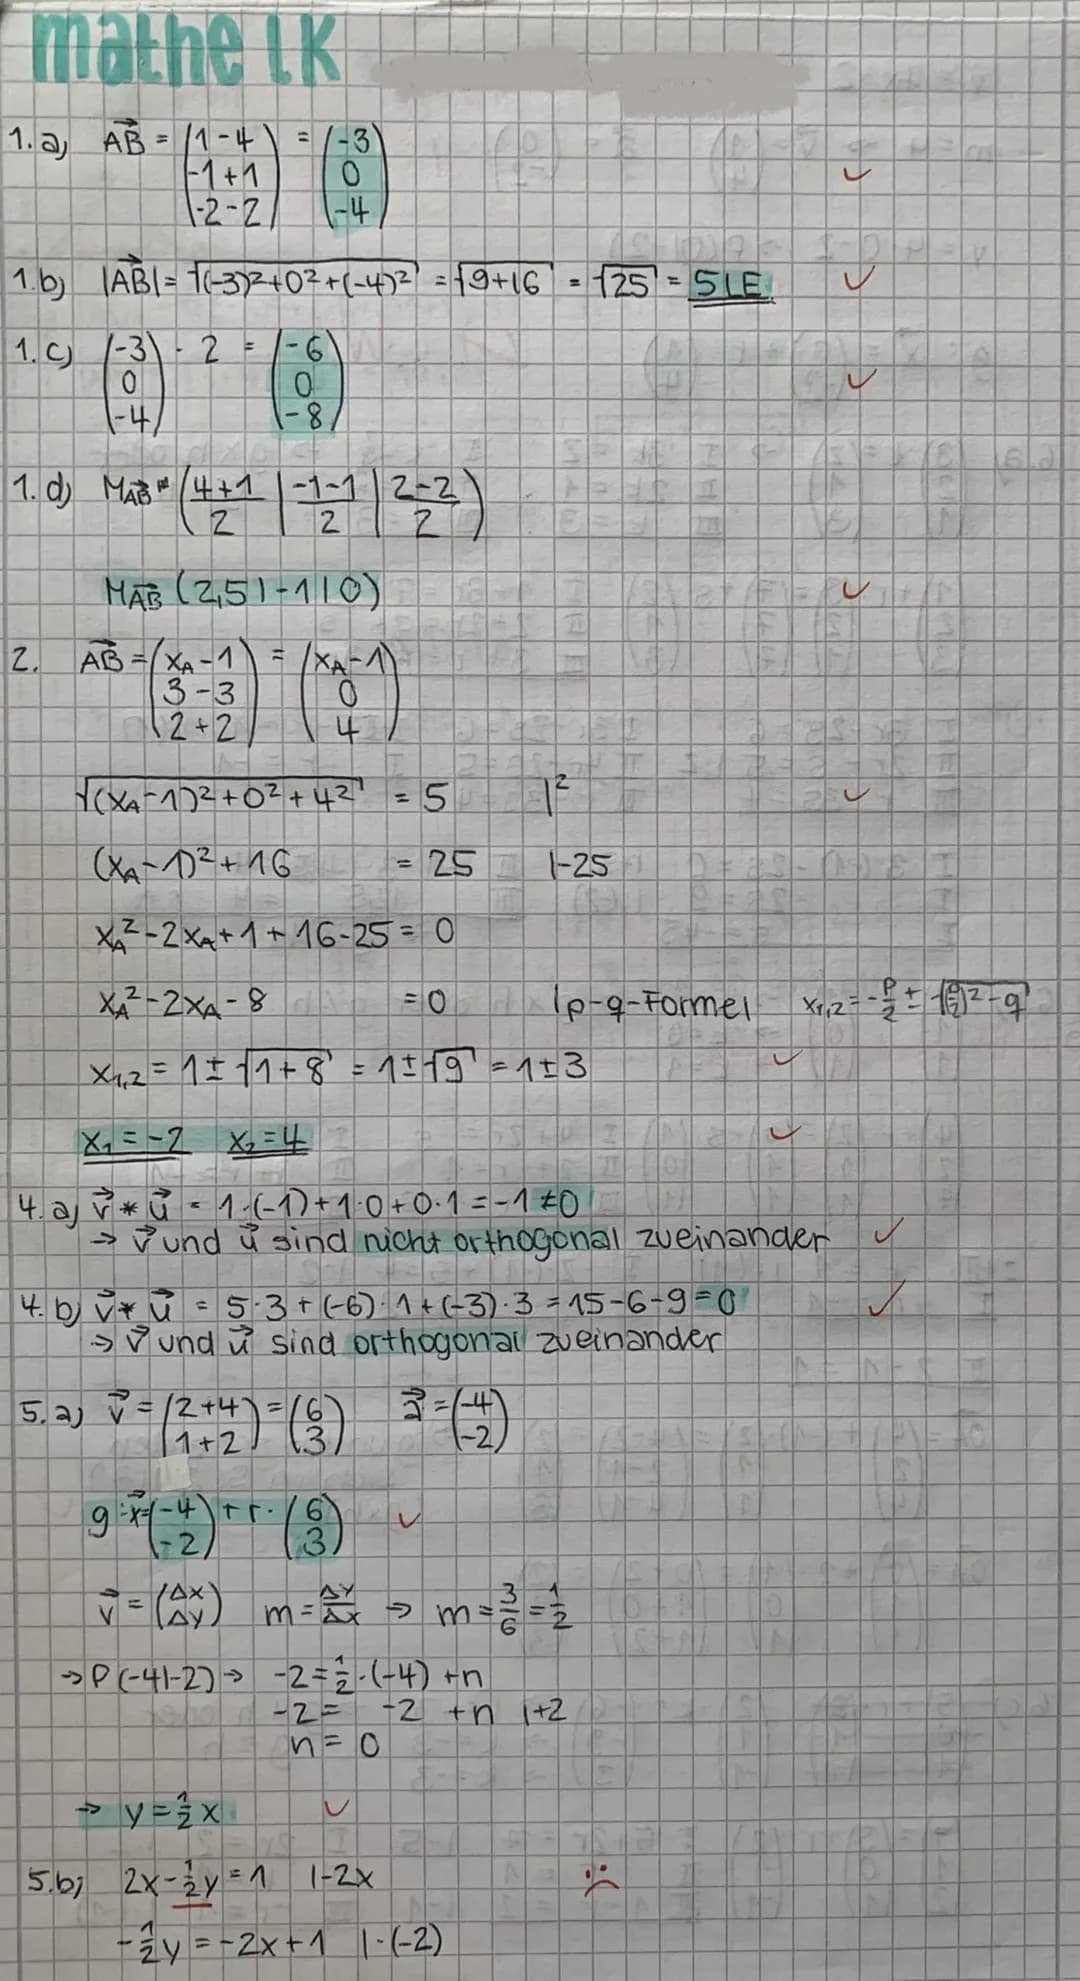 mathe LK
1. a) AB⃗ = (1-4 / -1+1 / -2-2) = (-3 / 0 / -4)
1. b) |AB⃗| = √((-3)²+0²+(-4)²) = √(9+16) = √25 = 5 LE
1. c) (-3 / 0 / -4) · 2 = (-6 / 0 / -8)
1. d) M_AB⃗ = (4+1/2 | -1-1/2 | 2-2/2)
M_AB⃗ (2,5|-1|0)
2. AB⃗ = (x_A-1 / 3-3 / 2+2) = (x_A-1 / 0 / 4)
√((x_A-1)²+0²+4²) = 5 |²
(x_A-1)²+16 = 25 |-25
x_A²-2x_A+1+16-25 = 0
x_A²-2x_A-8 = 0 |p-q-Formel x₁,₂ = -p/2 ± √((p/2)²-q)
x₁,₂ = 1±√(1+8) = 1±√9 = 1±3
x₁=-2 x₂=4
4. a) v⃗ * u⃗ = 1·(-1)+1·0+0·1 = -1 ≠0
→ v⃗ und u⃗ sind nicht orthogonal zueinander
4. b) v⃗ * u⃗ = 5·3+(-6)·1+(-3)·3 = 15-6-9 = 0
→ v⃗ und u⃗ sind orthogonal zueinander
5. a) v⃗ = (2+4 / 1+2) = (6 / 3) a⃗ = (-4 / -2)
g:x⃗ = (-4 / -2) + r · (6 / 3)
v⃗ = (Δx / Δy) m = Δy/Δx → m = 3/6 = 1/2
→ P(-4|-2) → -2 = 1/2·(-4) +n
-2 = -2 +n |+2
n = 0
→ y = 1/2 x
5. b) 2x-1/2y = 1 |-2x
-1/2y = -2x+1 |·(-2)